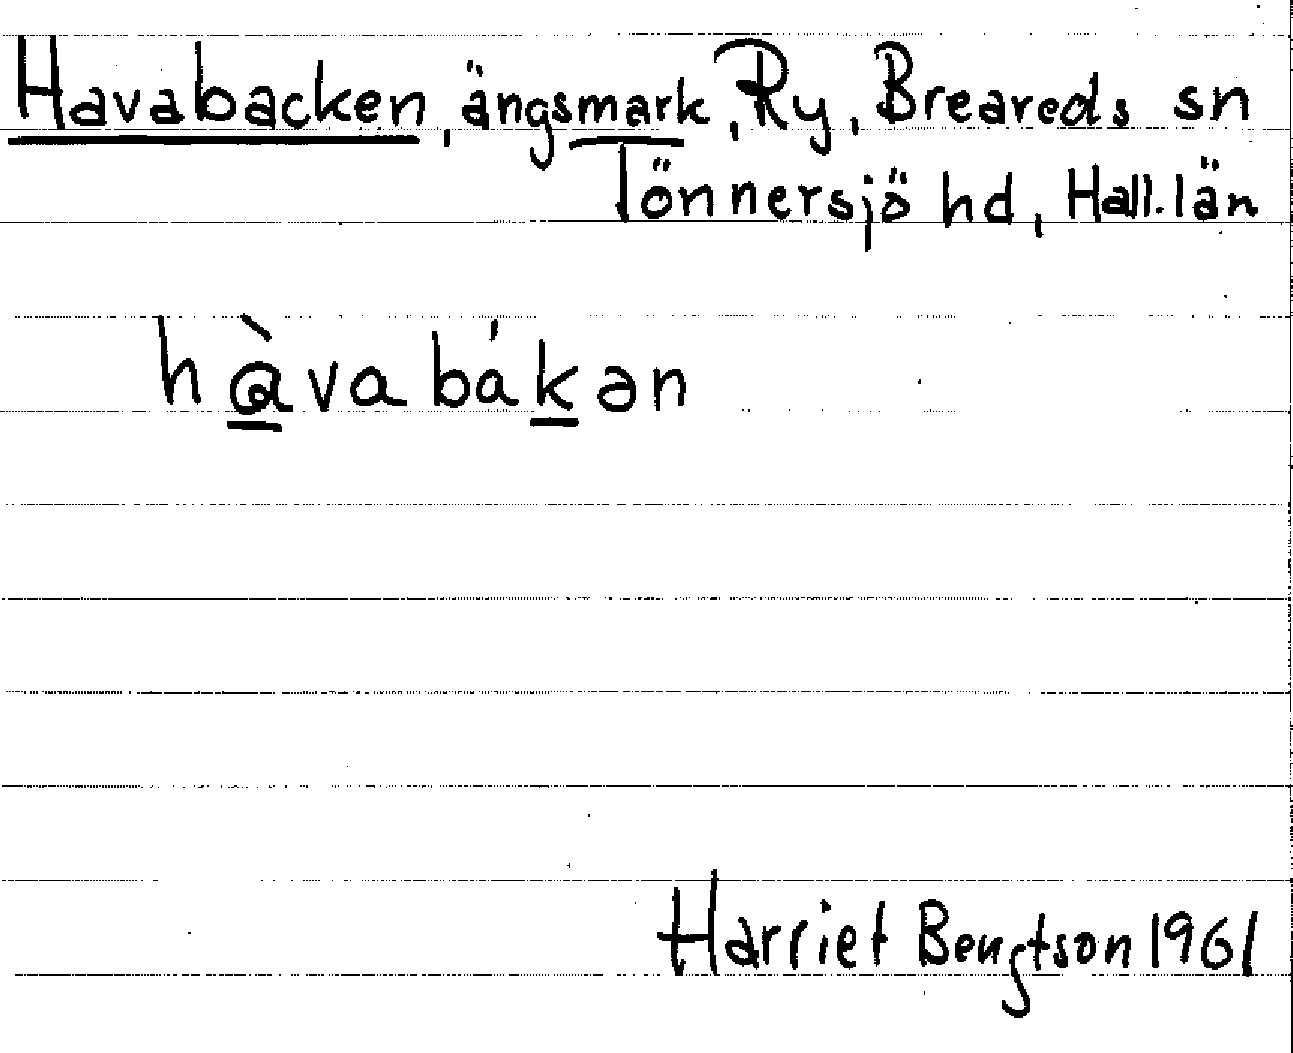 Havabacken, ängsmark, Ry, Breareds sn
Tönnersjö hd, Hall. län
hàvabákən
Harriet Bengtson 1961